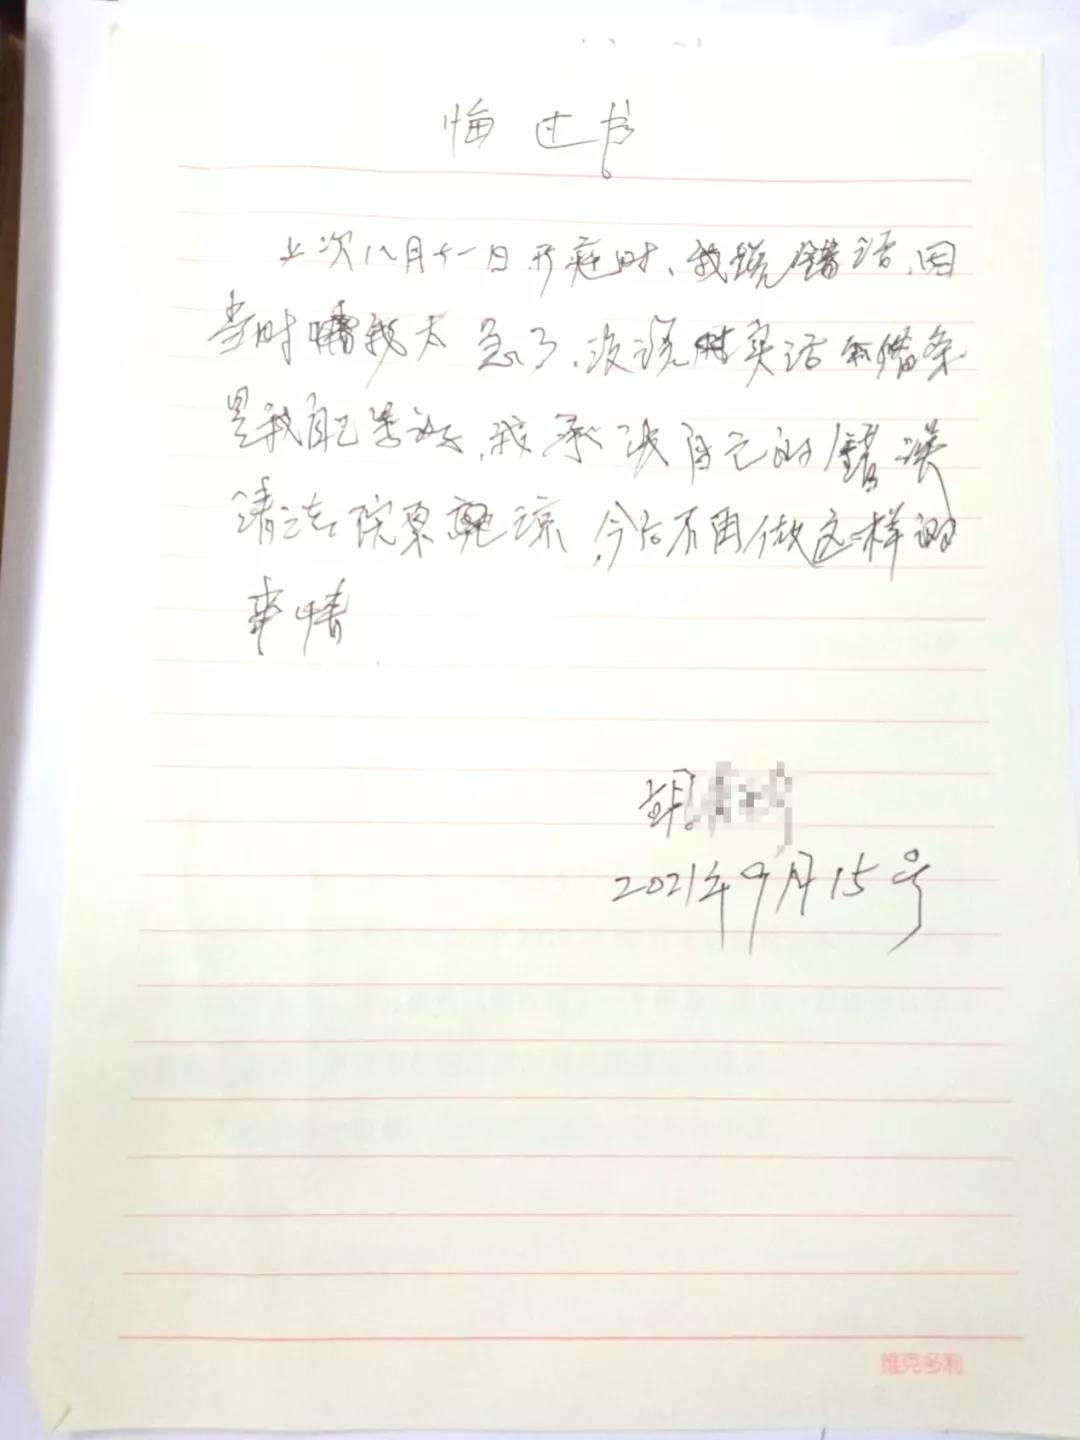 悔过书
上次八月十一日开庭时、我说错话、因
当时我太急了、没说实话 借条
是我自己写的、我承认自己的错误
请法院原谅、今后不再做这样的
事情
胡
2021年9月15号
维克多利